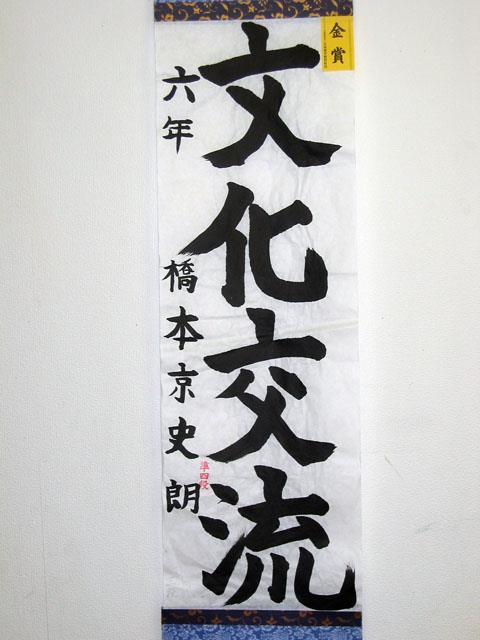 金賞
文化交流
六年 橋本京史朗
準四段